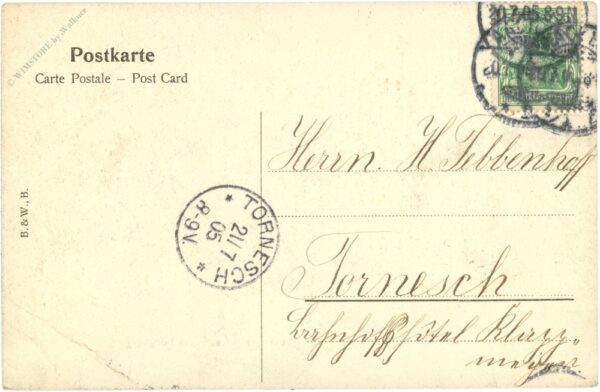 © WIMSTORE by Walkner
Postkarte
Carte Postale – Post Card
B. & W., B.
20.7.05.8-9N
TORNESCH
21/7
05
8-9V
Herrn. H. Tebbenhoff
Tornesch
Bahnhofshôtel Klapp-
meyer.